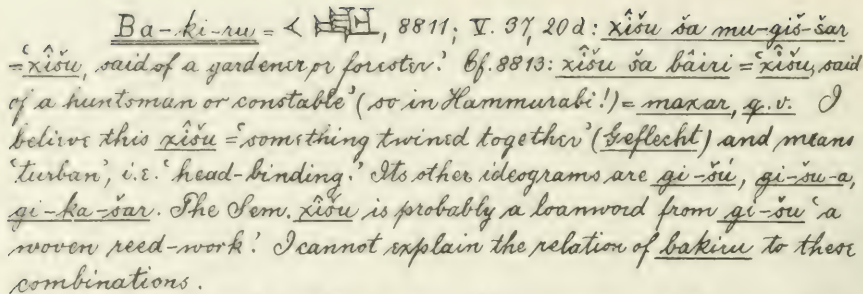 Ba-ki-ru = 𒌋 , 8811; V. 37, 20d: xîšu ša mu-giš-šar
= 'xîšu, said of a gardener or forester.' Cf. 8813: xîšu ša bâiri = 'xîšu, said
of a huntsman or constable' (so in Hammurabi!) = maxar, q.v. I
believe this xîšu = 'something twined together' (Geflecht) and means
'turban', i.e. 'head-binding.' Its other ideograms are gi-šú, gi-šu-a,
gi-ka-šar. The Sem. xîšu is probably a loanword from gi-šu 'a
woven reed-work.' I cannot explain the relation of bakiru to these
combinations.